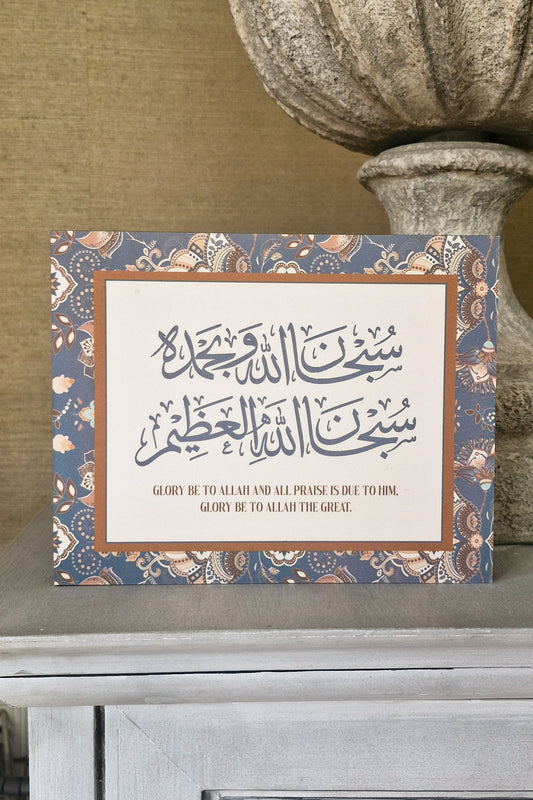 سُبْحَانَ اللهِ وَبِحَمْدِهِ
سُبْحَانَ اللهِ الْعَظِيمِ
GLORY BE TO ALLAH AND ALL PRAISE IS DUE TO HIM,
GLORY BE TO ALLAH THE GREAT.